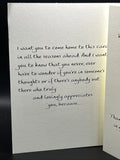 I want you to come home to this card
in all the seasons ahead. And I want
you to know that you never, ever
have to wonder if you're in someone's
thoughts or if there's anybody out
there who truly
and lovingly appreciates
you, because...